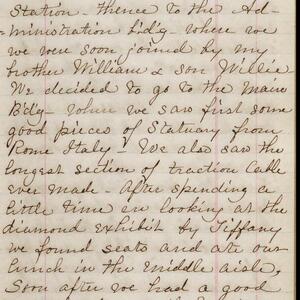 Station - thence to the Ad-
ministration bld'g - where we
we were soon joined by my
brother William & son Willie
We decided to go to the Main
B'd'g - where we saw first some
good pieces of Statuary from
Rome Italy - We also saw the
longest section of traction Cable
ever made - After spending a
little time in looking at the
diamond exhibit by Tiffany
we found seats and ate our
lunch in the middle aisle,
Soon after we had a good